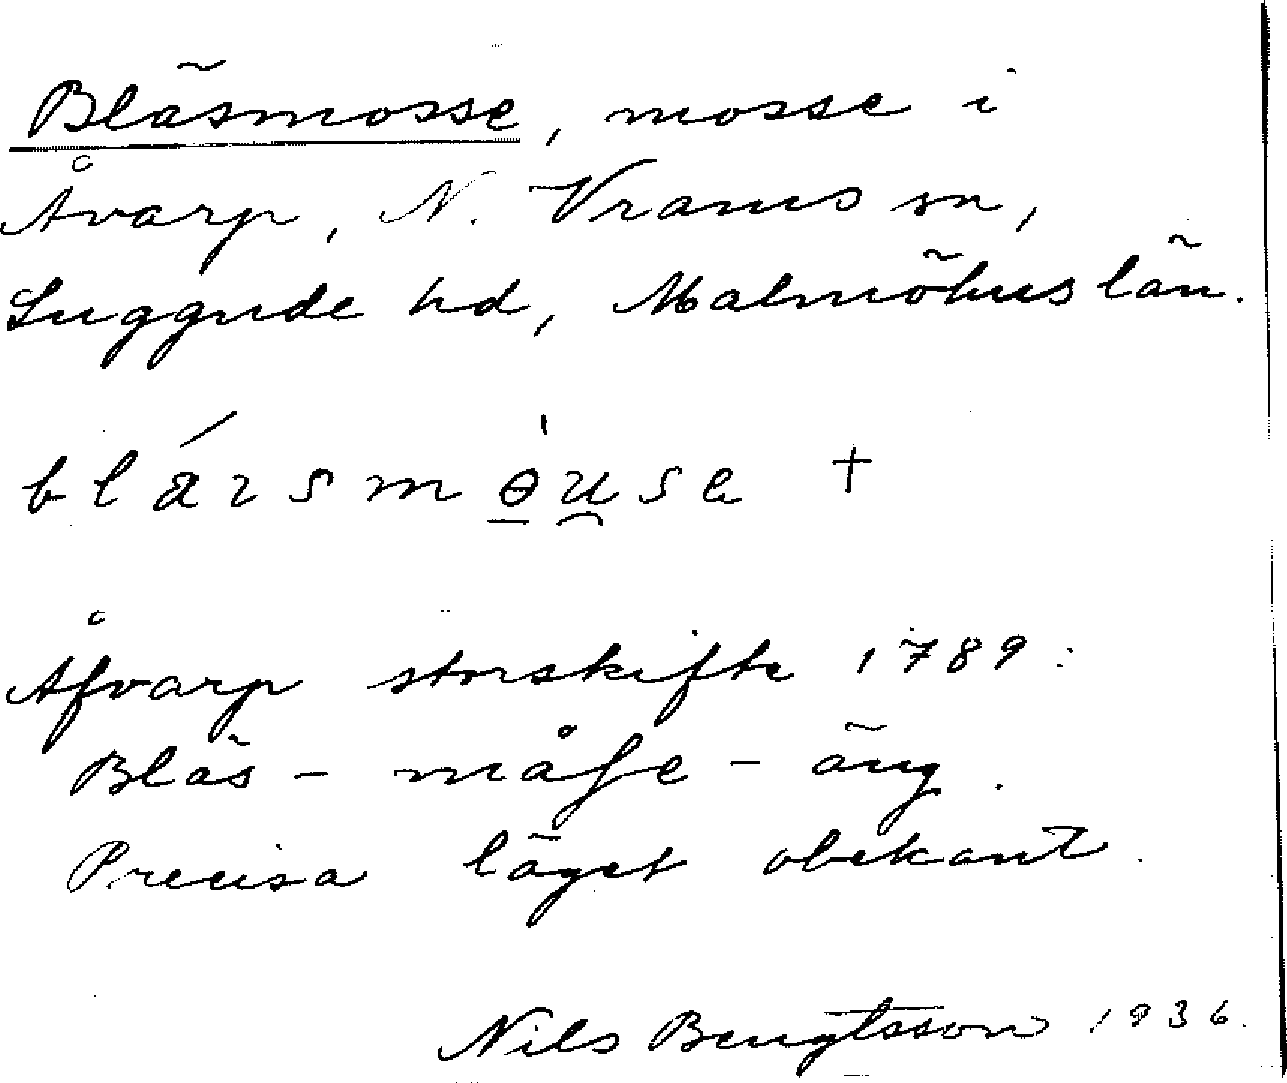 Bläsmosse, mosse i
Åvarp, N. Vrams sn,
Luggude hd, Malmöhus län.
blá2smo̱u̯sa +
Åfvarp storskifte 1789:
Bläs - måſe - äng.
Precisa läget obekant.
Nils Bengtsson 1936.